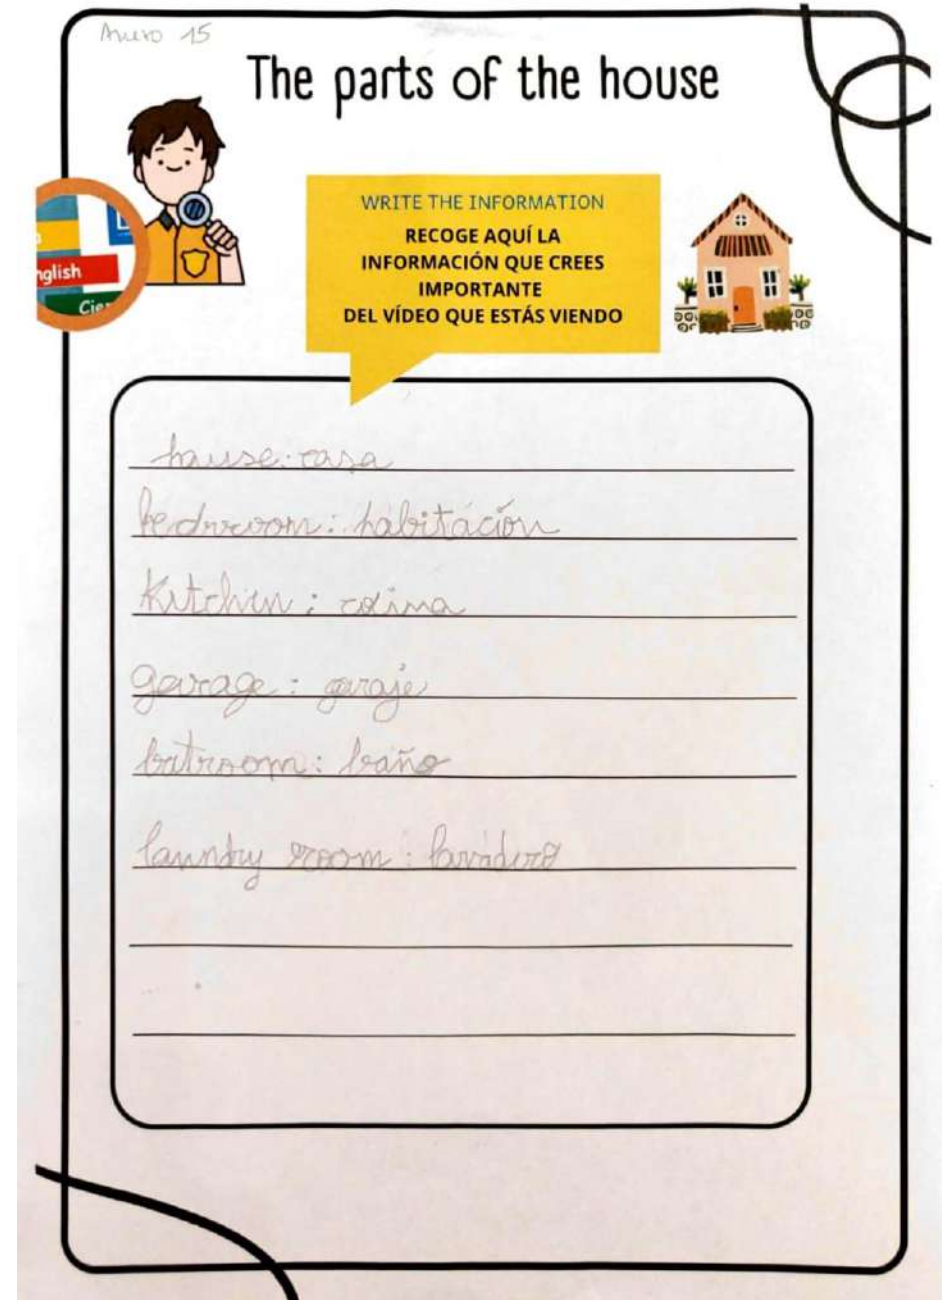 Anexo 15
The parts of the house
WRITE THE INFORMATION
RECOGE AQUÍ LA
INFORMACIÓN QUE CREES
IMPORTANTE
DEL VÍDEO QUE ESTÁS VIENDO
nglish
Cie
hause: casa
bedroom: habitación
Kitchen: cocina
garage: garaje
batroom: baño
laundry room: lavadero